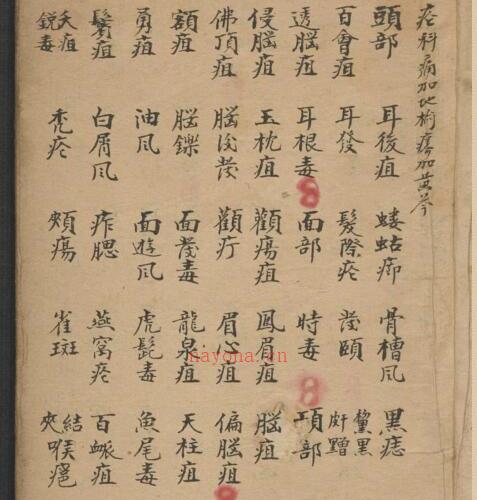 瘡科痛加地榆癢加黃芩
頭部 耳後疽 螻蛄癤 骨槽風 黑痣
百會疽 耳發 髮際瘡 發頤 黧黑皯䵟
透腦疽 耳根毒 面部 時毒 項部
侵腦疽 玉枕疽 顴瘍疽 鳳眉疽 腦疽
佛頂疽 腦後發 顴疔 眉心疽 偏腦疽
額疽 腦鑠 面發毒 龍泉疽 天柱疽
勇疽 油風 面遊風 虎髭毒 魚尾毒
鬢疽 白屑風 痄腮 燕窩瘡 百脈疽
夭疽銳毒 禿瘡 頰瘍 雀斑 結夾喉癰
nayona.cn